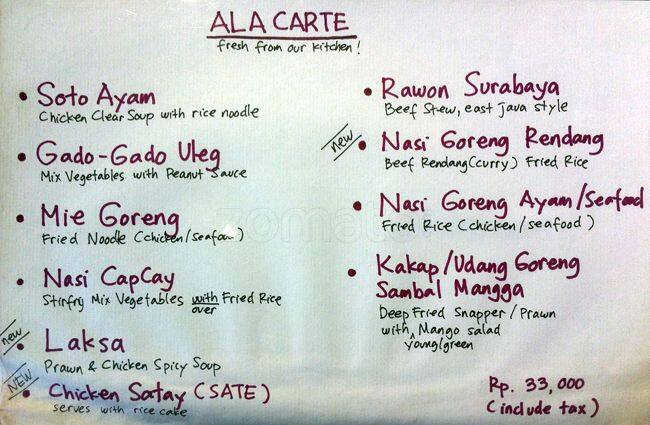 ALA CARTE
fresh from our kitchen!
• Soto Ayam
Chicken Clear Soup with rice noodle
• Gado-Gado Uleg
Mix Vegetables with Peanut Sauce
• Mie Goreng
Fried Noodle (chicken/seafood)
• Nasi CapCay
Stirfry Mix Vegetables with Fried Rice
over
new
• Laksa
Prawn & Chicken Spicy Soup
NEW
• Chicken Satay (SATE)
serves with rice cake
• Rawon Surabaya
Beef Stew, east java style
new
• Nasi Goreng Rendang
Beef Rendang (curry) Fried Rice
• Nasi Goreng Ayam/Seafood
Fried Rice (chicken/seafood)
• Kakap/Udang Goreng
Sambal Mangga
Deep Fried Snapper/Prawn
with ^ Mango salad
young/green
Rp. 33,000
(include tax)
zomato